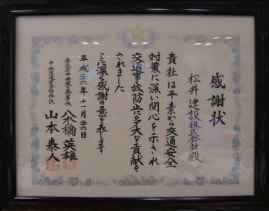 感謝状
松井建設株式会社殿
貴社は平素から交通安全
対策に深い関心を示され
交通事故防止に多大な貢献を
されました
ここに深く感謝の意を表します
平成二十六年十一月二十六日
八木橋英雄
山本泰人